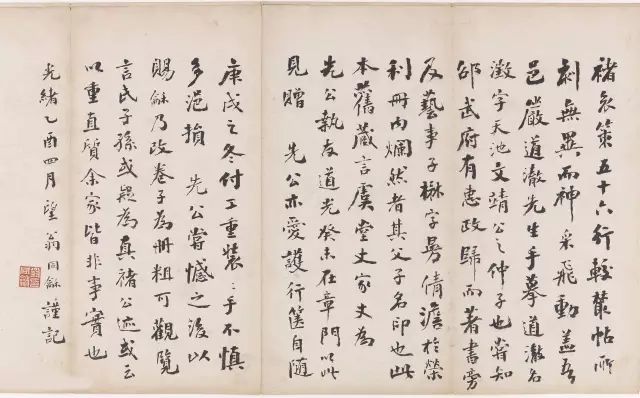 褚哀策五十六行較叢帖所
刻無異而神采飛動蓋吾
邑嚴道澈先生手摹道澈名
澂字天池文靖公之仲子也嘗知
邵武府有惠政歸而著書旁
及藝事子楙字髣倩澹於榮
利冊內爛然者其父子名印也此
本舊藏言虞堂丈家丈為
先公執友道光癸未在章門以此
見贈 先公亦愛護行篋自隨
庚戌之冬付工重裝〻手不慎
多浥損 先公嘗憾之後以
賜龢乃改卷子為冊粗可觀覽
言民子孫或疑為真褚公迹或云
以重直質余家皆非事實也
光緒乙酉四月望翁同龢謹記